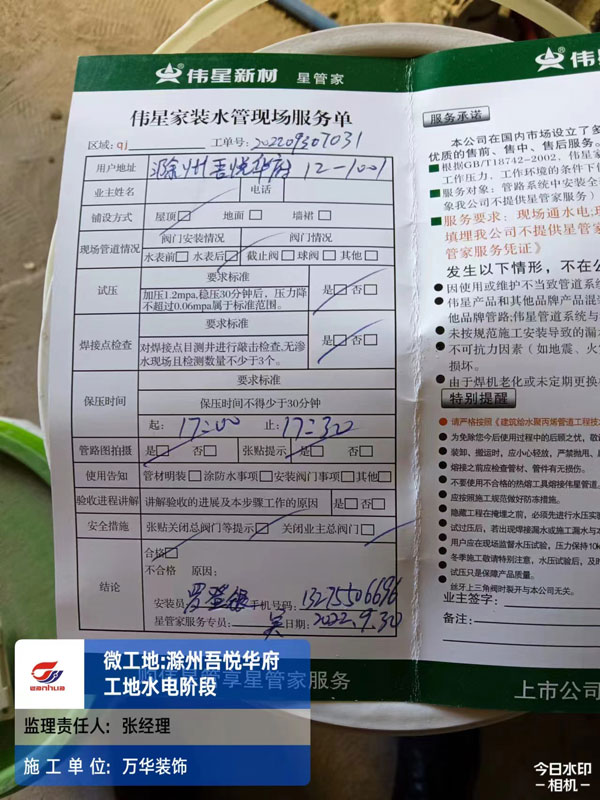 伟星新材 星管家
伟星家装水管现场服务单
区域: qj 工单号: 202209307031
用户地址 滁州吾悦华府 12-1001
业主姓名 电话
铺设方式 屋顶 地面 墙裙
现场管道情况 阀门安装情况 阀门情况
水表前 水表后 截止阀 球阀 其他
试压 要求标准
加压1.2mpa,稳压30分钟后，压力降不超过0.06mpa属于标准范围。 是 否
焊接点检查 要求标准
对焊接点目测并进行敲击检查,无渗水现场且检测数量不少于3个。 是 否
保压时间 要求标准
保压时间不得少于30分钟
起: 17:00 止: 17:30
管路图拍摄 是 否 张贴提示 是 否
使用告知 管材明装 涂防水事项 安装阀门事项 其他
验收进程讲解 讲解验收的进展及本步骤工作的原因 是 否
安全措施 张贴关闭总阀门等提示 关闭业主总阀门
结论 合格
不合格 原因:
安装员 手机号码: 13275506696
星管家服务专员: 吴 日期: 2022.9.30
星管家服务
伟星
服务承诺
本公司在国内市场设立了多
优质的售前、售中、售后服务。
根据GB/T18742-2002、伟星家
工作压力、工作环境的条件下使
服务对象：管路系统中安装全
象我公司不提供星管家服务）
服务要求：现场通水电;现
填埋我公司不提供星管家
管家服务凭证》
发生以下情形，不在公
因使用或维护不当致管道系
伟星产品和其他品牌产品混
他品牌管路;伟星管道系统与
未按规范施工安装导致的漏水
不可抗力因素（如地震、火
损坏.
由于焊机老化或未定期更换
特别提醒
请严格按照《建筑给水聚丙烯管道工程技术
为免除您今后使用过程中的后顾之忧，敬请
装卸、搬运时，应小心轻放，严禁抛甩、
熔接之前应检查管材、管件有无损伤。
不要使用不合格的热熔工具熔接伟星管道。
应按照施工规范做好防冻措施。
隐蔽工程在掩埋之前，必须先进行水压实验
试过压后，若出现焊接漏水或施工漏水与本
用户应在现场监督水压试验，压力保持10k
冬季施工敬请特别注意，水压试验后，及时
试压只是保障产品质量。
丝牙上三角阀时裂开与本公司无关.
业主签字:
备注:
上市公司
wanhua
微工地:滁州吾悦华府
工地水电阶段
监理责任人: 张经理
施工单位: 万华装饰
今日水印
-相机-